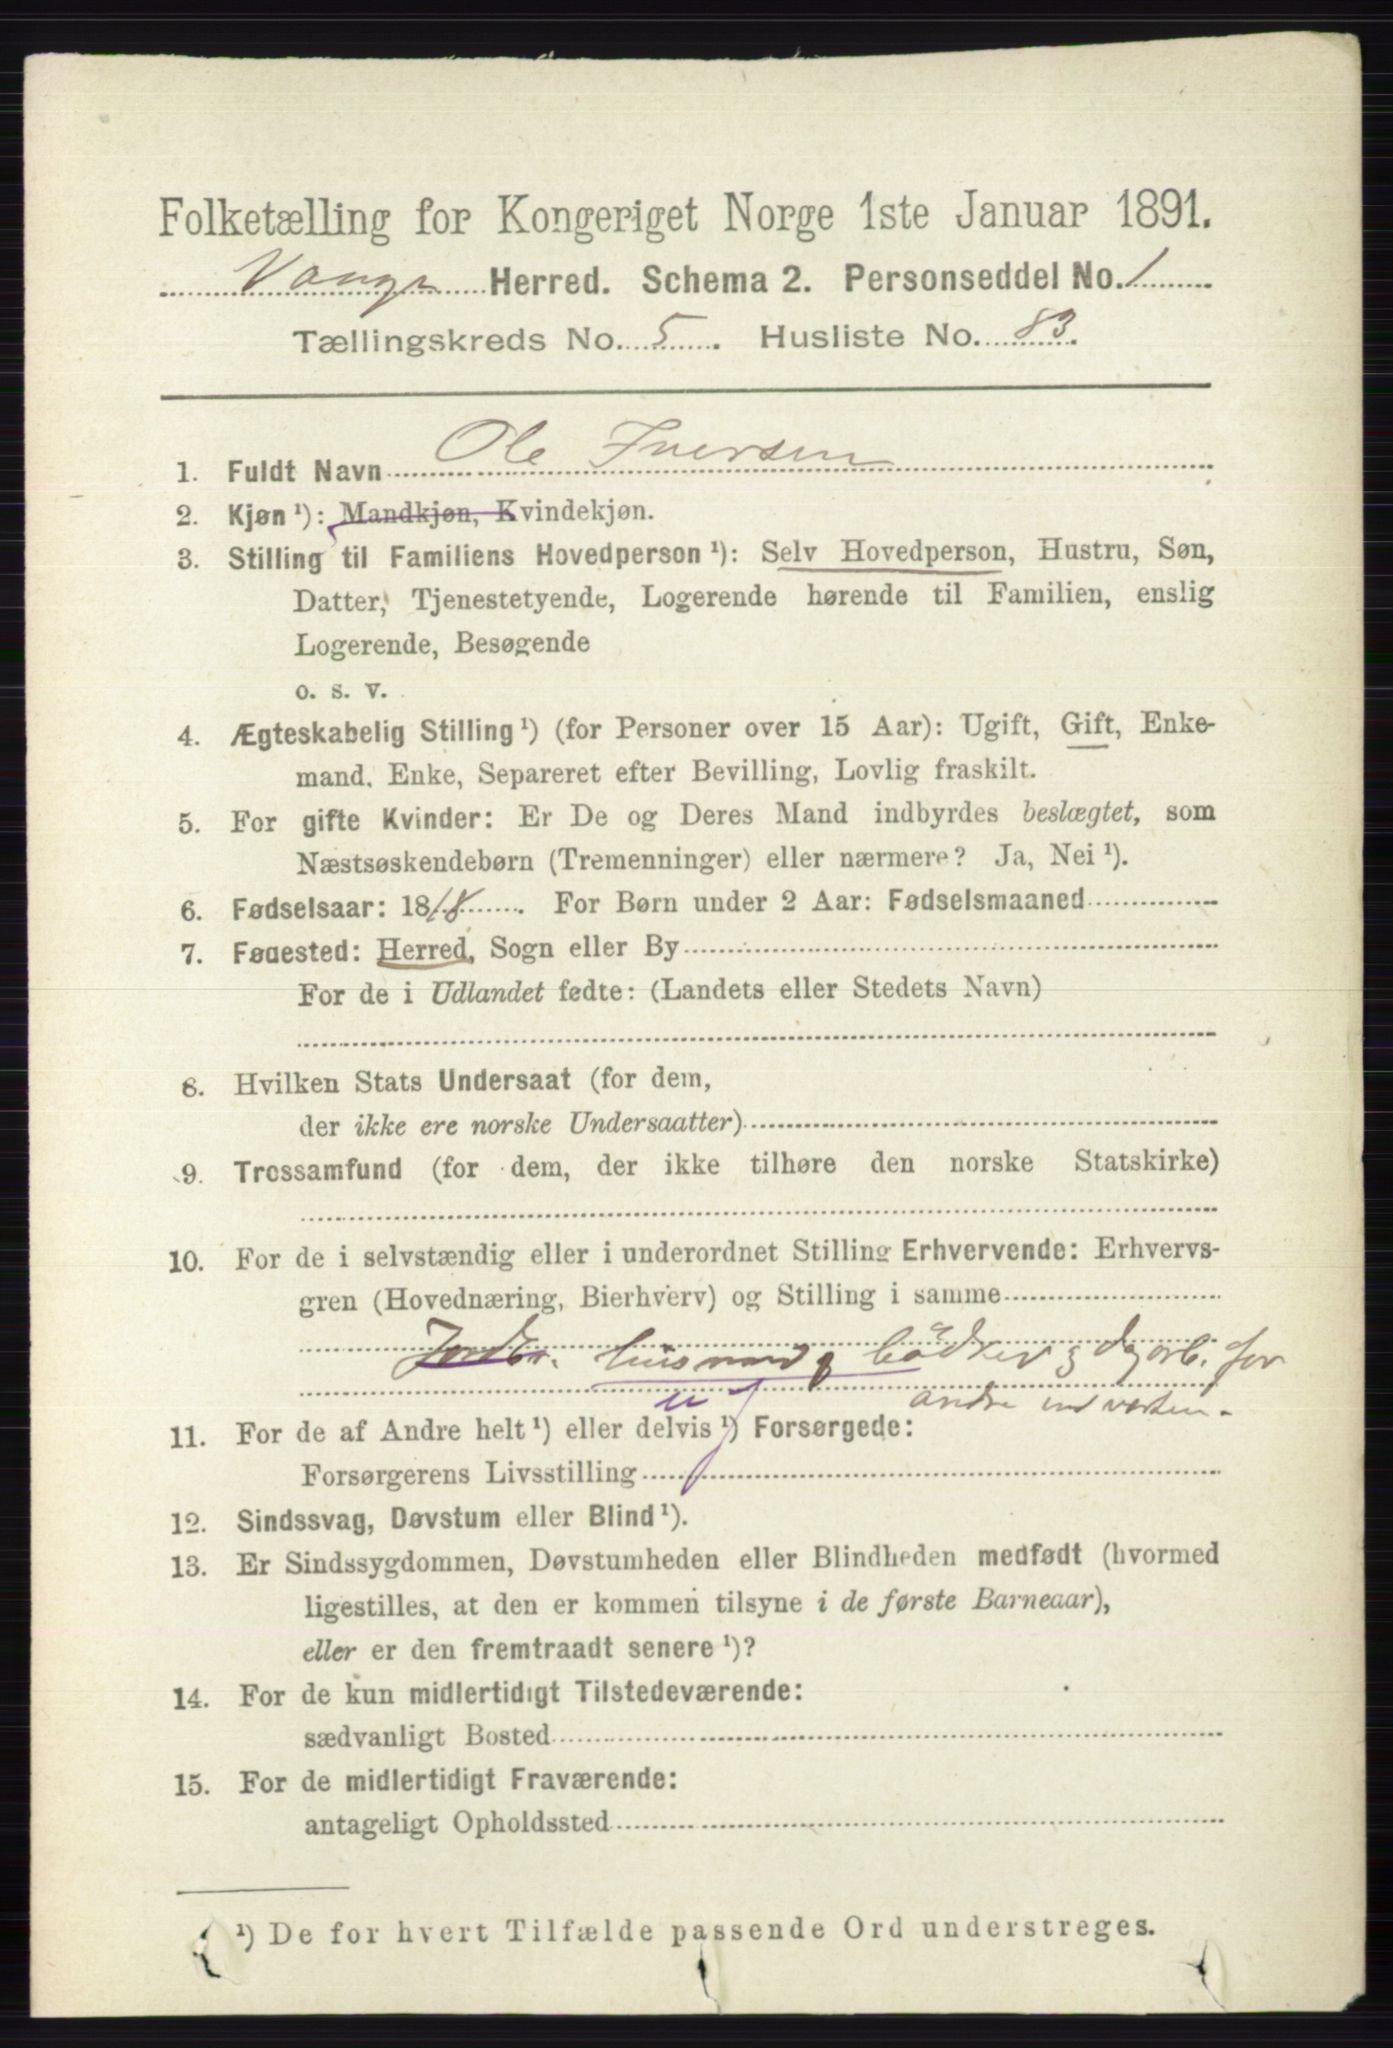 Folketælling for Kongeriget Norge 1ste Januar 1891.
Vangs Herred. Schema 2. Personseddel No. 1
Tællingskreds No. 5. Husliste No. 83.
1. Fuldt Navn Ole Iversen
2. Kjøn ¹): Mandkjøn, Kvindekjøn.
3. Stilling til Familiens Hovedperson ¹): Selv Hovedperson, Hustru, Søn,
Datter, Tjenestetyende, Logerende hørende til Familien, enslig
Logerende, Besøgende
o. s. v.
4. Ægteskabelig Stilling ¹) (for Personer over 15 Aar): Ugift, Gift, Enke-
mand, Enke, Separeret efter Bevilling, Lovlig fraskilt.
5. For gifte Kvinder: Er De og Deres Mand indbyrdes beslægtet, som
Næstsøskendebørn (Tremenninger) eller nærmere? Ja, Nei ¹).
6. Fødselsaar: 1818. For Børn under 2 Aar: Fødselsmaaned
7. Fødested: Herred, Sogn eller By
For de i Udlandet fødte: (Landets eller Stedets Navn)
8. Hvilken Stats Undersaat (for dem,
der ikke ere norske Undersaatter)
9. Trossamfund (for dem, der ikke tilhøre den norske Statskirke)
10. For de i selvstændig eller i underordnet Stilling Erhvervende: Erhvervs-
gren (Hovednæring, Bierhverv) og Stilling i samme
Jordbr. husmand bödker & dagarb. for
andre
11. For de af Andre helt ¹) eller delvis ¹) Forsørgede:
Forsørgerens Livsstilling
12. Sindssvag, Døvstum eller Blind ¹).
13. Er Sindssygdommen, Døvstumheden eller Blindheden medfødt (hvormed
ligestilles, at den er kommen tilsyne i de første Barneaar),
eller er den fremtraadt senere ¹)?
14. For de kun midlertidigt Tilstedeværende:
sædvanligt Bosted
15. For de midlertidigt Fraværende:
antageligt Opholdssted
¹) De for hvert Tilfælde passende Ord understreges.